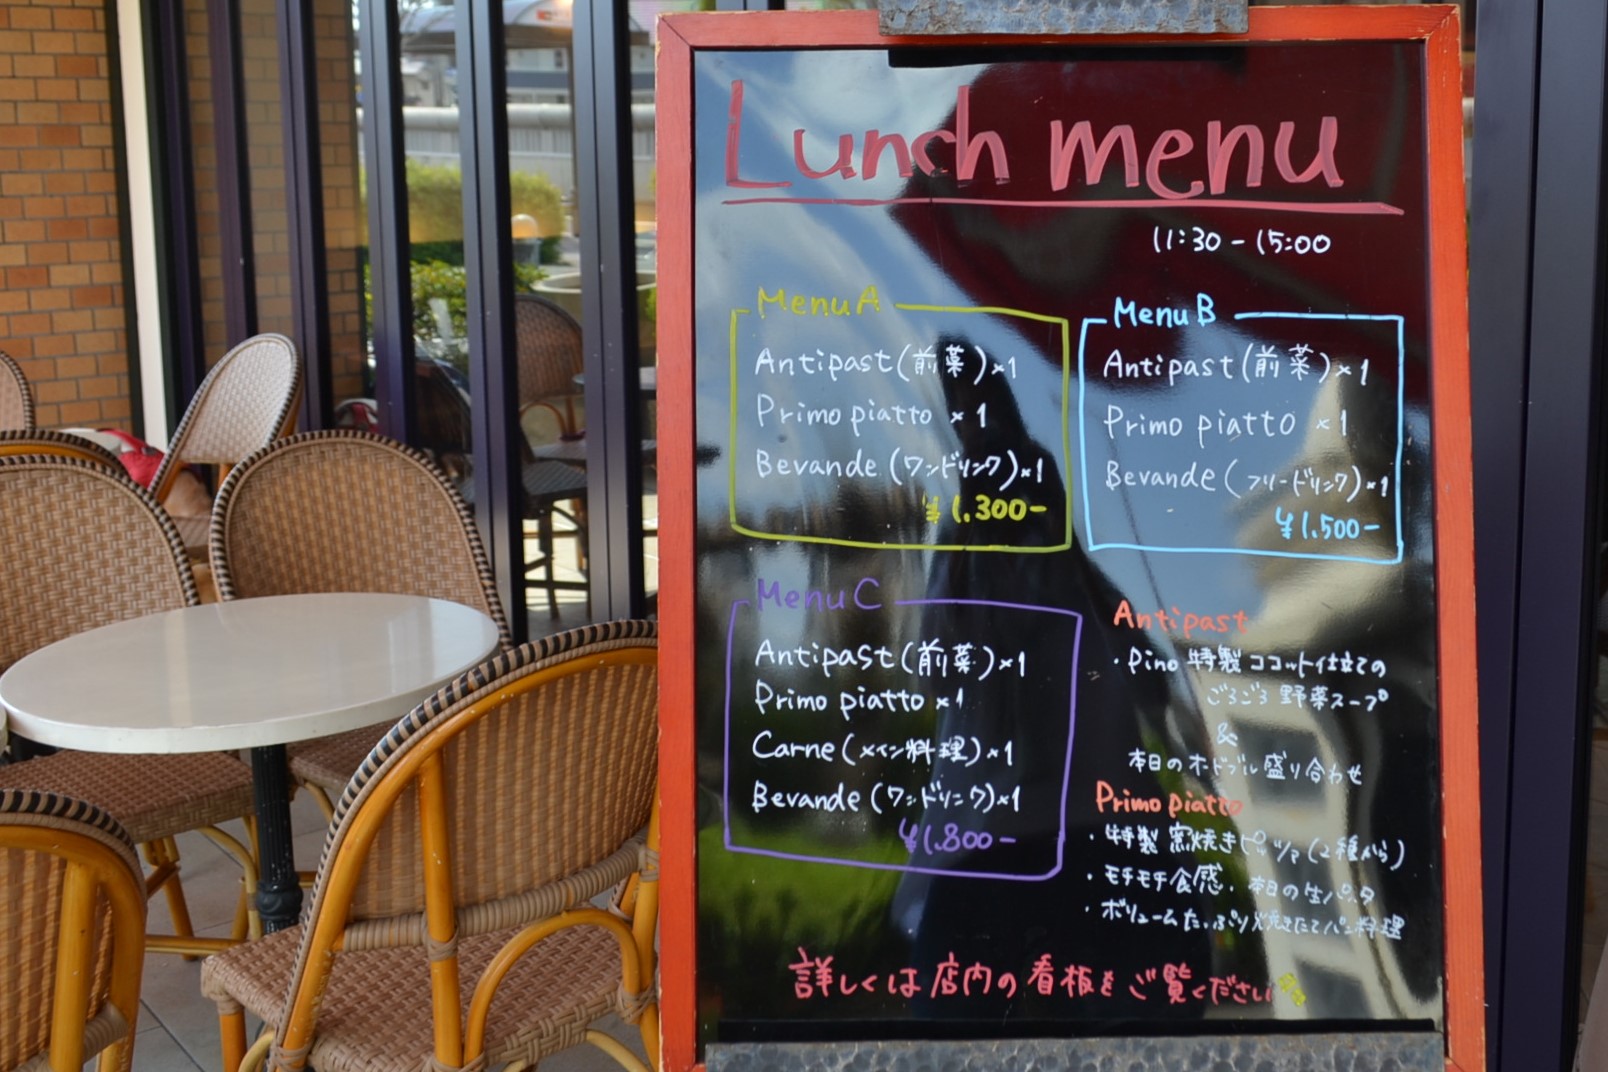 Lunch menu
11:30 - 15:00
Menu A
Antipast (前菜) × 1
Primo piatto × 1
Bevande (ワンドリンク) × 1
¥1.300-
Menu B
Antipast (前菜) × 1
Primo piatto × 1
Bevande (フリードリンク) × 1
¥1.500-
Menu C
Antipast (前菜) × 1
Primo piatto × 1
Carne (メイン料理) × 1
Bevande (ワンドリンク) × 1
¥1.800-
Antipast
・Pino 特製 ココット仕立ての
ごろごろ 野菜スープ
&
本日のオードブル盛り合わせ
Primo piatto
・特製 窯焼きピッツァ (2種から)
・モチモチ食感・本日の生パスタ
・ボリュームたっぷり焼きたてパン料理
詳しくは店内の看板をご覧ください